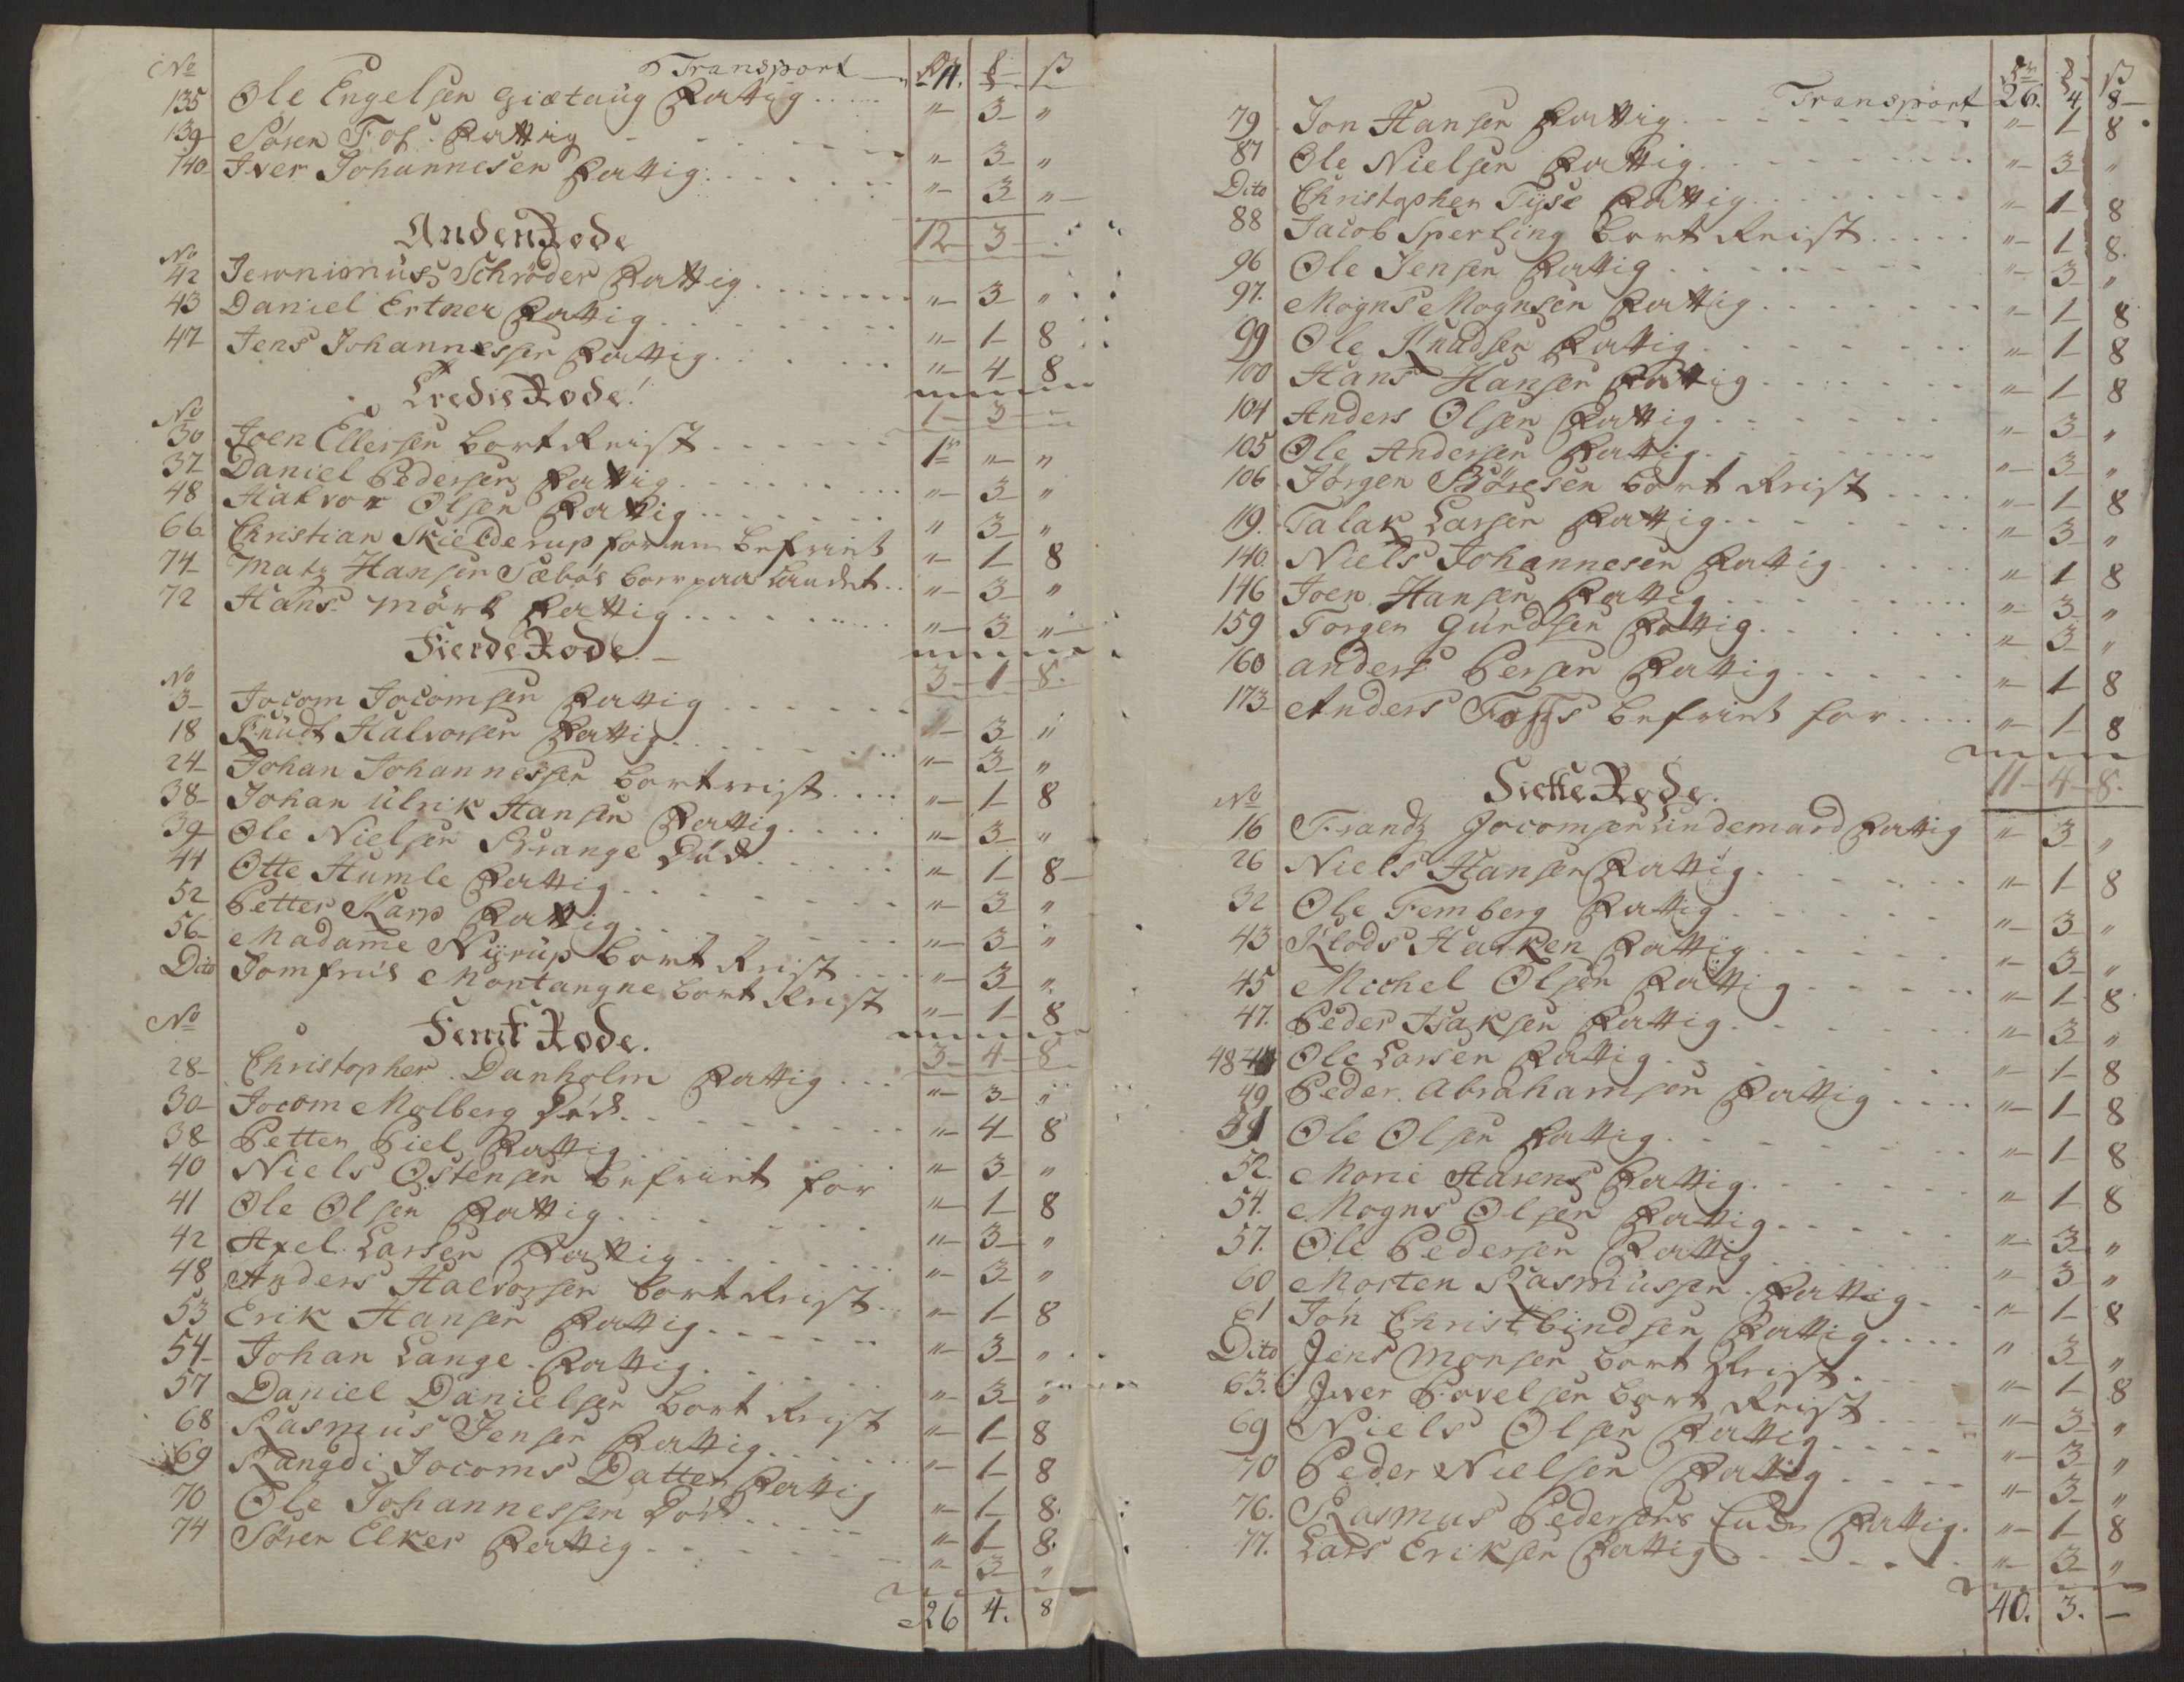 No Transport 11. ß
135 Ole Engelsen Giætaug Fattig " 3 "
139 Søren Fos. Fattig " 3 "
140 Iver Johannesen Fattig " 3 "
Anden Rode 12 3
No
42 Jeronimus Schrøder Fattig " 3 "
43 Daniel Ertner Fattig " 1 8
47 Jens Johannessen Fattig " 4 8
Tredie Rode! 1 3 "
No
30 Joen Ellersen bort Reist 1 " "
37 Daniel Pedersen Fattig " 3 "
48 Halvor Olsen Fattig " 3 "
66 Christian Skielderup forun befriet " 1 8
74 Matz Hansen Sæbøs boer paa Landet " 3 "
72 Hans Mørk Fattig " 3 "
Fierde Rode 3 1 8.
No
3 Jocom Jocomsen Fattig " 3 "
18 Knudt Halvorsen Fattig " 3 "
24 Johan Johannessen bortreist " 1 8
38 Johan Ulrik Hansen Fattig " 3 "
39 Ole Nielsen Strange Død " 1 8
44 Otte Humle Fattig " 3 "
52 Petter Karp Fattig " 3 "
56 Madame Nyrup bort Reist " 3 "
Dito Jomfrue Montangne bort Reist " 1 8
No Femte Rode. 3 4 8
28 Christopher Danholm Fattig " 3 "
30 Jocom Molberg Død " 4 8
38 Petter Piel Fattig " 3 "
40 Niels Ostensen befriet for " 1 8
41 Ole Olsen Fattig " 3 "
42 Axel Larsen Fattig " 3 "
48 Anders Halvorsen bort Reist " 1 8
53 Erik Hansen Fattig " 3 "
54 Johan Lange Fattig " 3 "
57 Daniel Danielsen bort Reist " 1 8
68 Rasmus Jensen Fattig " 1 8
69 Rangdi Jocoms Datter Fattig " 1 8.
70 Ole Johannessen Død " 1 8.
74 Søren Elker Fattig " 3 "
26 4. 8
Transport 26. 4. 8
79 Jon Hansen Fattig " 1 8
87 Ole Nielsen Fattig " 3 "
Dito Christopher Tyse Fattig " 1 8
88 Jacob Sperling bort Reist " 1 8.
96 Ole Jensen Fattig " 3 "
97. Mogns Mognsen Fattig " 1 8
99 Ole Knudsen Fattig " 1 8
100 Hans Hansen Fattig " 1 8
104 Anders Olsen Fattig " 3 "
105 Ole Andersen Fattig " 3 "
106 Jørgen Børesen bort Reist " 1 8
119. Talak Larsen Fattig " 3 "
140. Niels Johannesen Fattig " 1 8
146 Joen Hansen Fattig " 3 "
159 Torgen Gundsen Fattig " 3 "
160 anders Persen Fattig " 1 8
173 Anders Foss befriet for " 1 8
Siette Rode. 11 4 8.
No
16 Frandz Jocomsen Lindemard Fattig " 3 "
26 Niels Hansen Fattig " 1 8
32 Ole Femberg Fattig " 3 "
43 Klods Harken Fattig " 3 "
45 Michel Olsen Fattig " 1 8
47. Peder Isaksen Fattig " 3 "
48 Ole Larsen Fattig " 1 8
49 Peder Abrahamsen Fattig " 1 8
51 Ole Olsen Fattig " 1 8
52. Morie Harens Fattig " 1 8
54. Mogns Olsen Fattig " 3 "
57. Ole Pedersen Fattig " 3 "
60 Morten Rasmussen Fattig " 1 8
61 Jon Christbindsen Fattig " 3 "
Dito Jens Monsen bort Reist " 1 8
63. Jver Povelsen bort Reist " 3 "
69 Niels Olsen Fattig " 3 "
70 Peder Nielsen Fattig " 3 "
76. Rasmus Pedersens Enke Fattig. " 1 8
77. Lars Eriksen Fattig " 3 "
40. 3. —